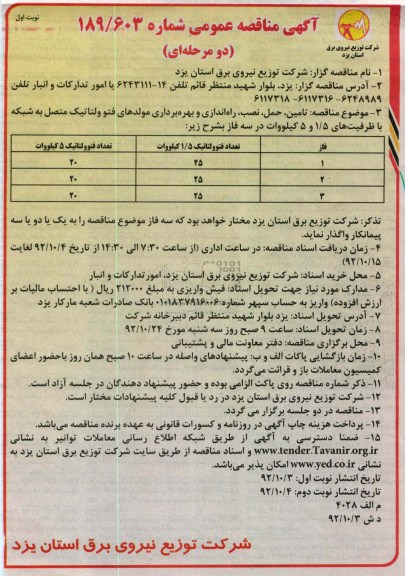 نوبت اول
آگهی مناقصه عمومی شماره ۱۸۹/۶۰۳
(دو مرحله‌ای)
شرکت توزیع نیروی برق
استان یزد
۱- نام مناقصه گزار: شرکت توزیع نیروی برق استان یزد
۲- آدرس مناقصه گزار: یزد، بلوار شهید منتظر قائم تلفن ۱۴-۶۲۴۳۱۱۱ یا امور تدارکات و انبار تلفن
۶۲۴۸۹۸۹- ۶۱۱۷۳۱۶- ۶۱۱۷۳۱۸
۳- موضوع مناقصه: تامین، حمل، نصب، راه‌اندازی و بهره‌برداری مولدهای فتو ولتاتیک متصل به شبکه
با ظرفیت‌های ۱/۵ و ۵ کیلووات در سه فاز بشرح زیر:
فاز تعداد فتوولتاتیک ۱/۵ کیلووات تعداد فتوولتاتیک ۵ کیلووات
۱ ۲۵ ۲۰
۲ ۲۵ ۲۰
۳ ۲۵ ۲۰
تذکر: شرکت توزیع برق استان یزد مختار خواهد بود که سه فاز موضوع مناقصه را به یک یا دو یا سه
پیمانکار واگذار نماید.
۴- زمان دریافت اسناد مناقصه: در ساعت اداری (از ساعت ۷:۳۰ الی ۱۴:۳۰ از تاریخ ۹۲/۱۰/۴ لغایت
۹۲/۱۰/۱۵)
۵- محل خرید اسناد: شرکت توزیع نیروی برق استان یزد، امور تدارکات و انبار
۶- مدارک مورد نیاز جهت تحویل اسناد: فیش واریزی به مبلغ ۲۱۲۰۰۰ ریال ( با احتساب مالیات بر
ارزش افزوده) واریز به حساب سپهر شماره ۰۱۰۱۸۲۷۹۱۶۰۰۶ بانک صادرات شعبه مارکار یزد
۷- آدرس تحویل اسناد: یزد بلوار شهید منتظر قائم دبیرخانه شرکت
۸- زمان تحویل اسناد: ساعت ۹ صبح روز سه شنبه مورخ ۹۲/۱۰/۲۴
۹- محل برگزاری مناقصه: دفتر معاونت مالی و پشتیبانی
۱۰- زمان بازگشایی پاکات الف و ب: پیشنهادهای واصله در ساعت ۱۰ صبح همان روز باحضور اعضای
کمیسیون معاملات باز و قرائت می‌گردد.
۱۱- ذکر شماره مناقصه روی پاکت الزامی بوده و حضور پیشنهاد دهندگان در جلسه آزاد است.
۱۲- شرکت توزیع نیروی برق استان یزد در رد یا قبول کلیه پیشنهادات مختار است.
۱۳- مناقصه در دو جلسه برگزار می گردد.
۱۴- پرداخت هزینه چاپ آگهی در روزنامه و کسورات قانونی به عهده برنده مناقصه می‌باشد.
۱۵- ضمنا دسترسی به آگهی از طریق شبکه اطلاع رسانی معاملات توانیر به نشانی
www.tender.Tavanir.org.ir و اسناد مناقصه از طریق سایت شرکت توزیع برق استان یزد به
نشانی www.yed.co.ir امکان پذیر می‌باشد.
تاریخ انتشار نوبت اول: ۹۲/۱۰/۳
تاریخ انتشار نوبت دوم: ۹۲/۱۰/۴
م الف ۴۰۲۸
د ش ۹۲/۱۰/۳
شرکت توزیع نیروی برق استان یزد